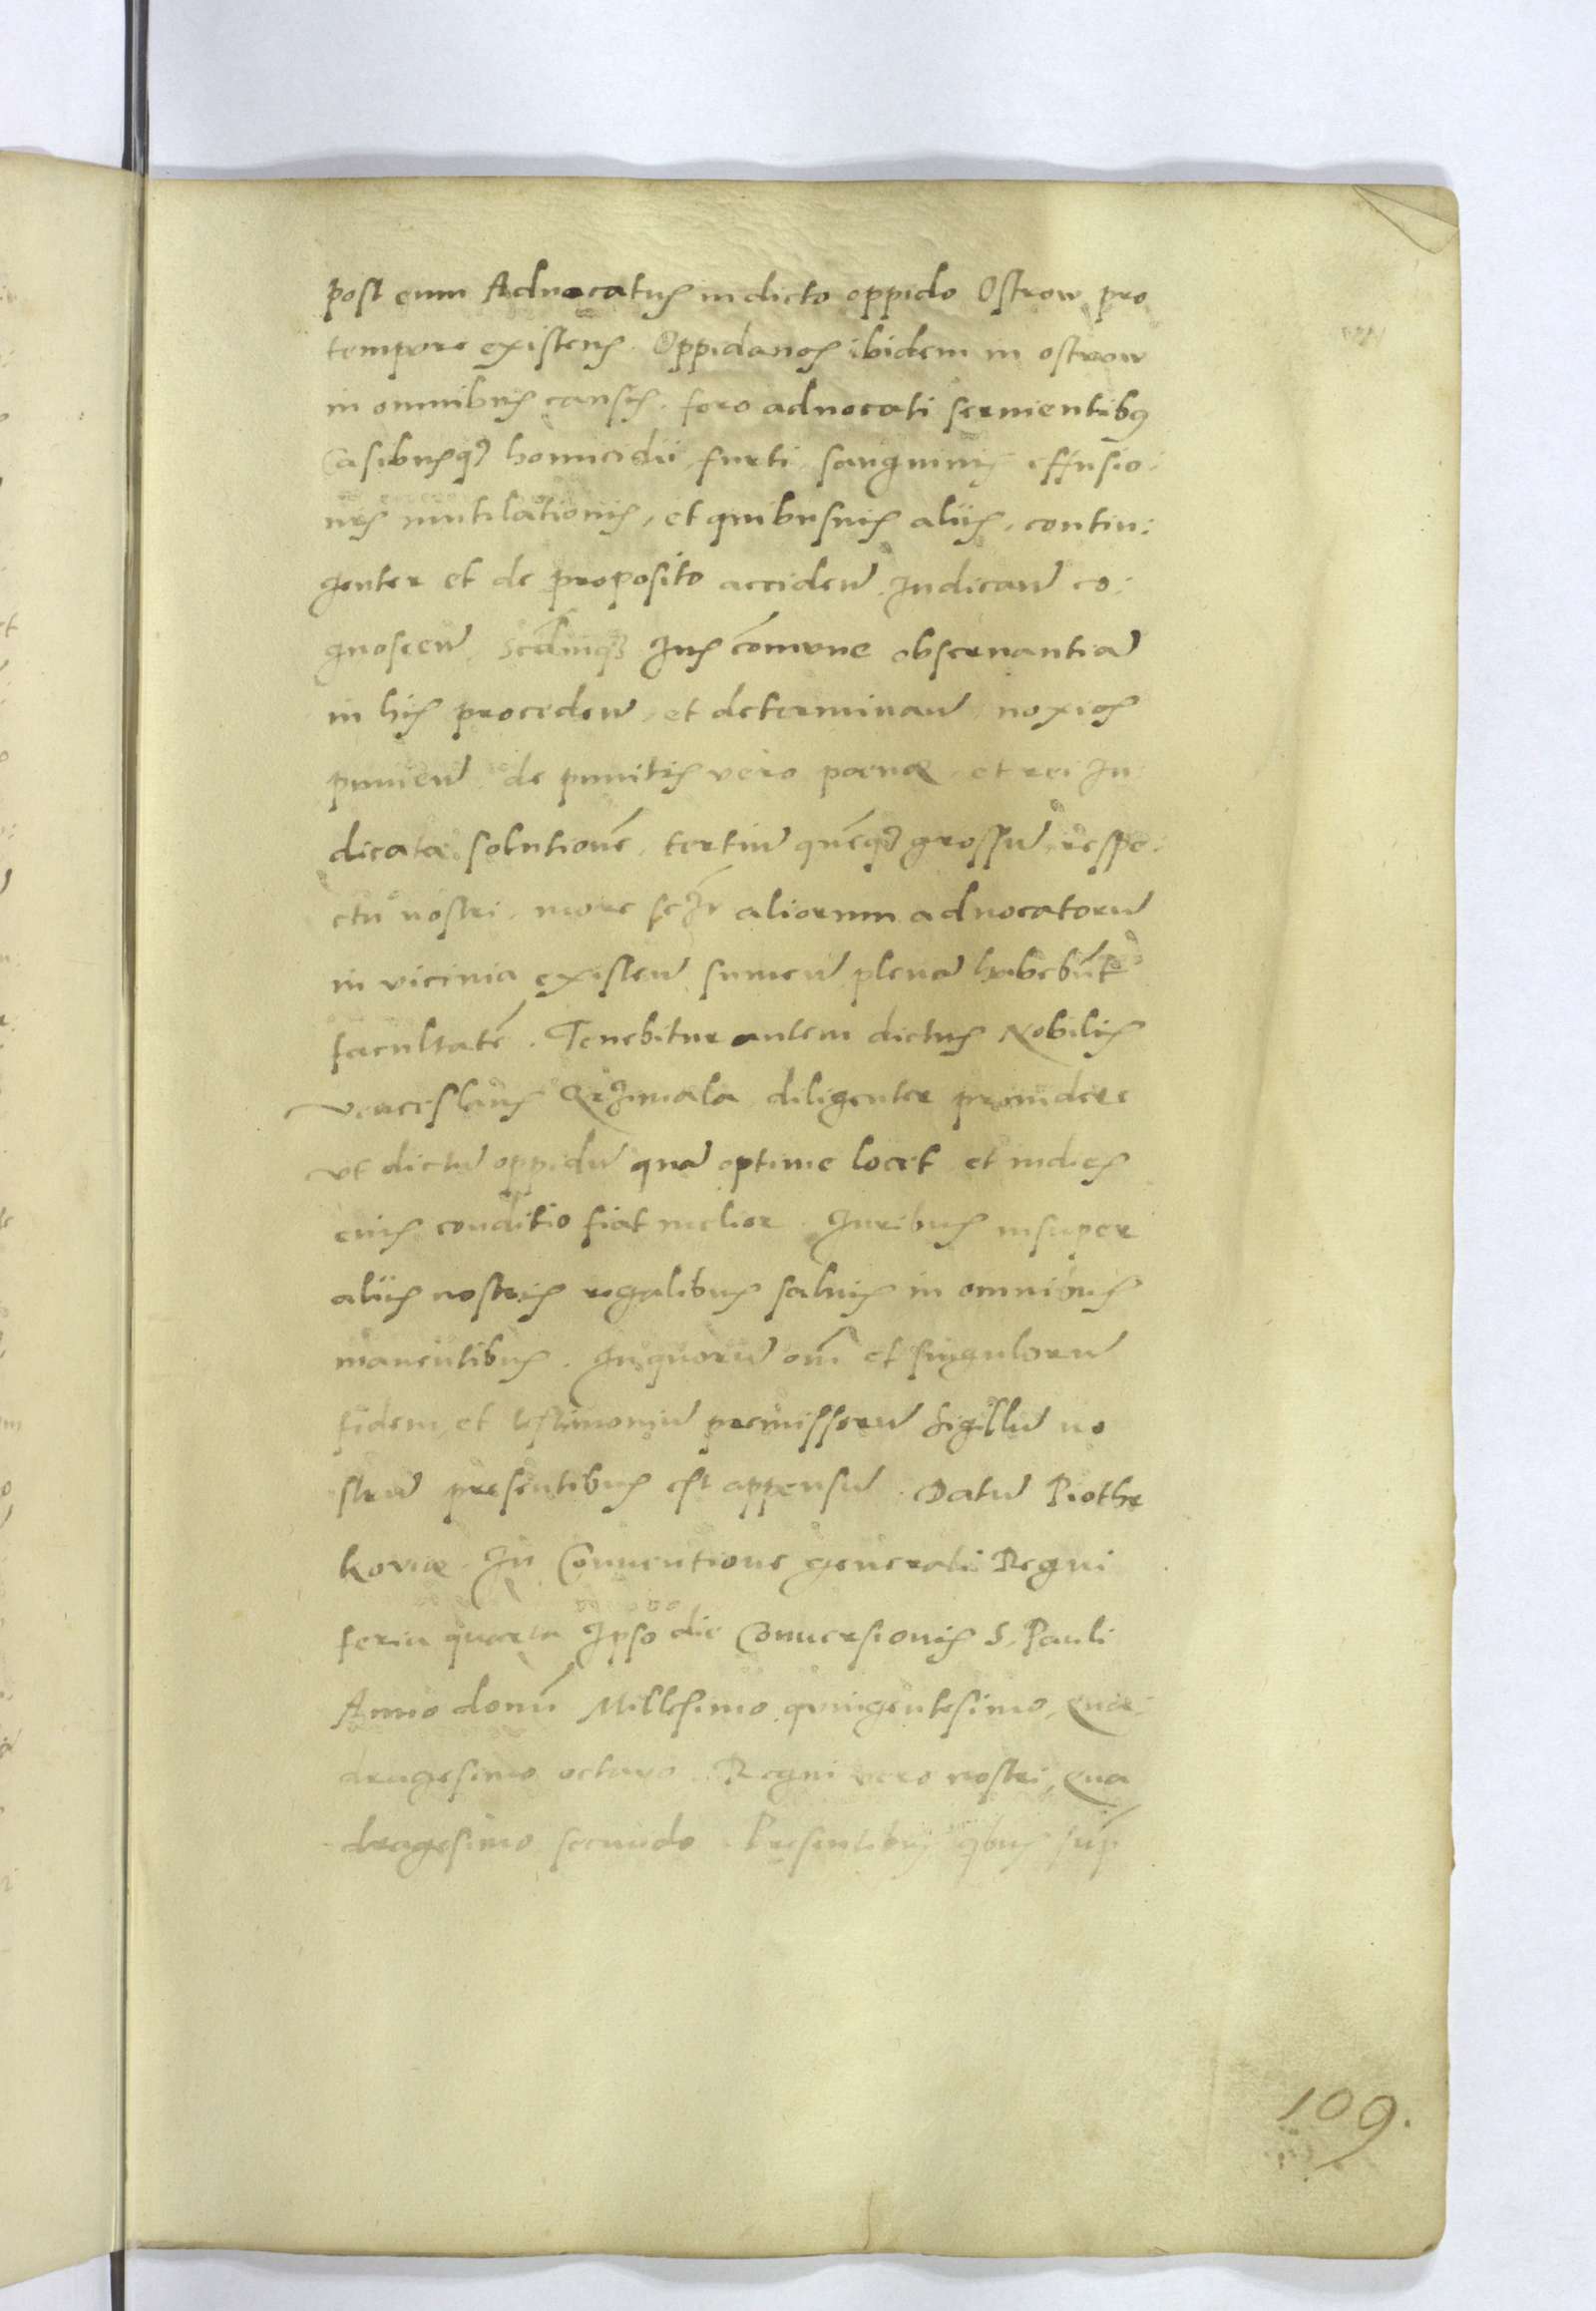 post eum Aduocatus in dicto oppido Ostrow pro
tempore existens. Oppidanos ibidem in ostrow
in omnibus causis. foro aduocati seruientibus
Casibusq₃ homicidii furti sanguinis effusio:
nis mutilationis, et quibusuis aliis, contin:
genter et de proposito acciden̄. Judican̄ co:
gnoscen̄ Secdmq₃ Jus cōmune obseruantiā
in his proceden̄, et determinan̄ noxios
punien̄ de punitis vero poenæ et rei Ju
dicatæ solutionē, tertiū quēq₃ grossū respe:
ctu nostri. more sczr aliorum aduocatorū
in vicinia existen̄ sumen̄ plenā habebūt
facultatē. Tenebitur autem dictus Nobilis
Venceslaus Qrzimala diligenter prouidere
vt dictū oppidū quā optime locet et indies
eius conditio fiat melior. Juribus insuper
aliis nostris regalibus saluis in omnibus
manentibus. In quorū om̄ et singulorū
fidem, et testimoniū premissorū Sigillū no
strū presentibus est appensū. Datū Piothr
koviæ. In Conuentione generali Regni
feria quarta Ipso die Conuersionis S. Pauli
Anno domī Millesimo quingentesimo, qua:
dragesimo octauo. Regni vero nostri, qua
dragesimo secundo. Presentibus qbus sup̄
109.